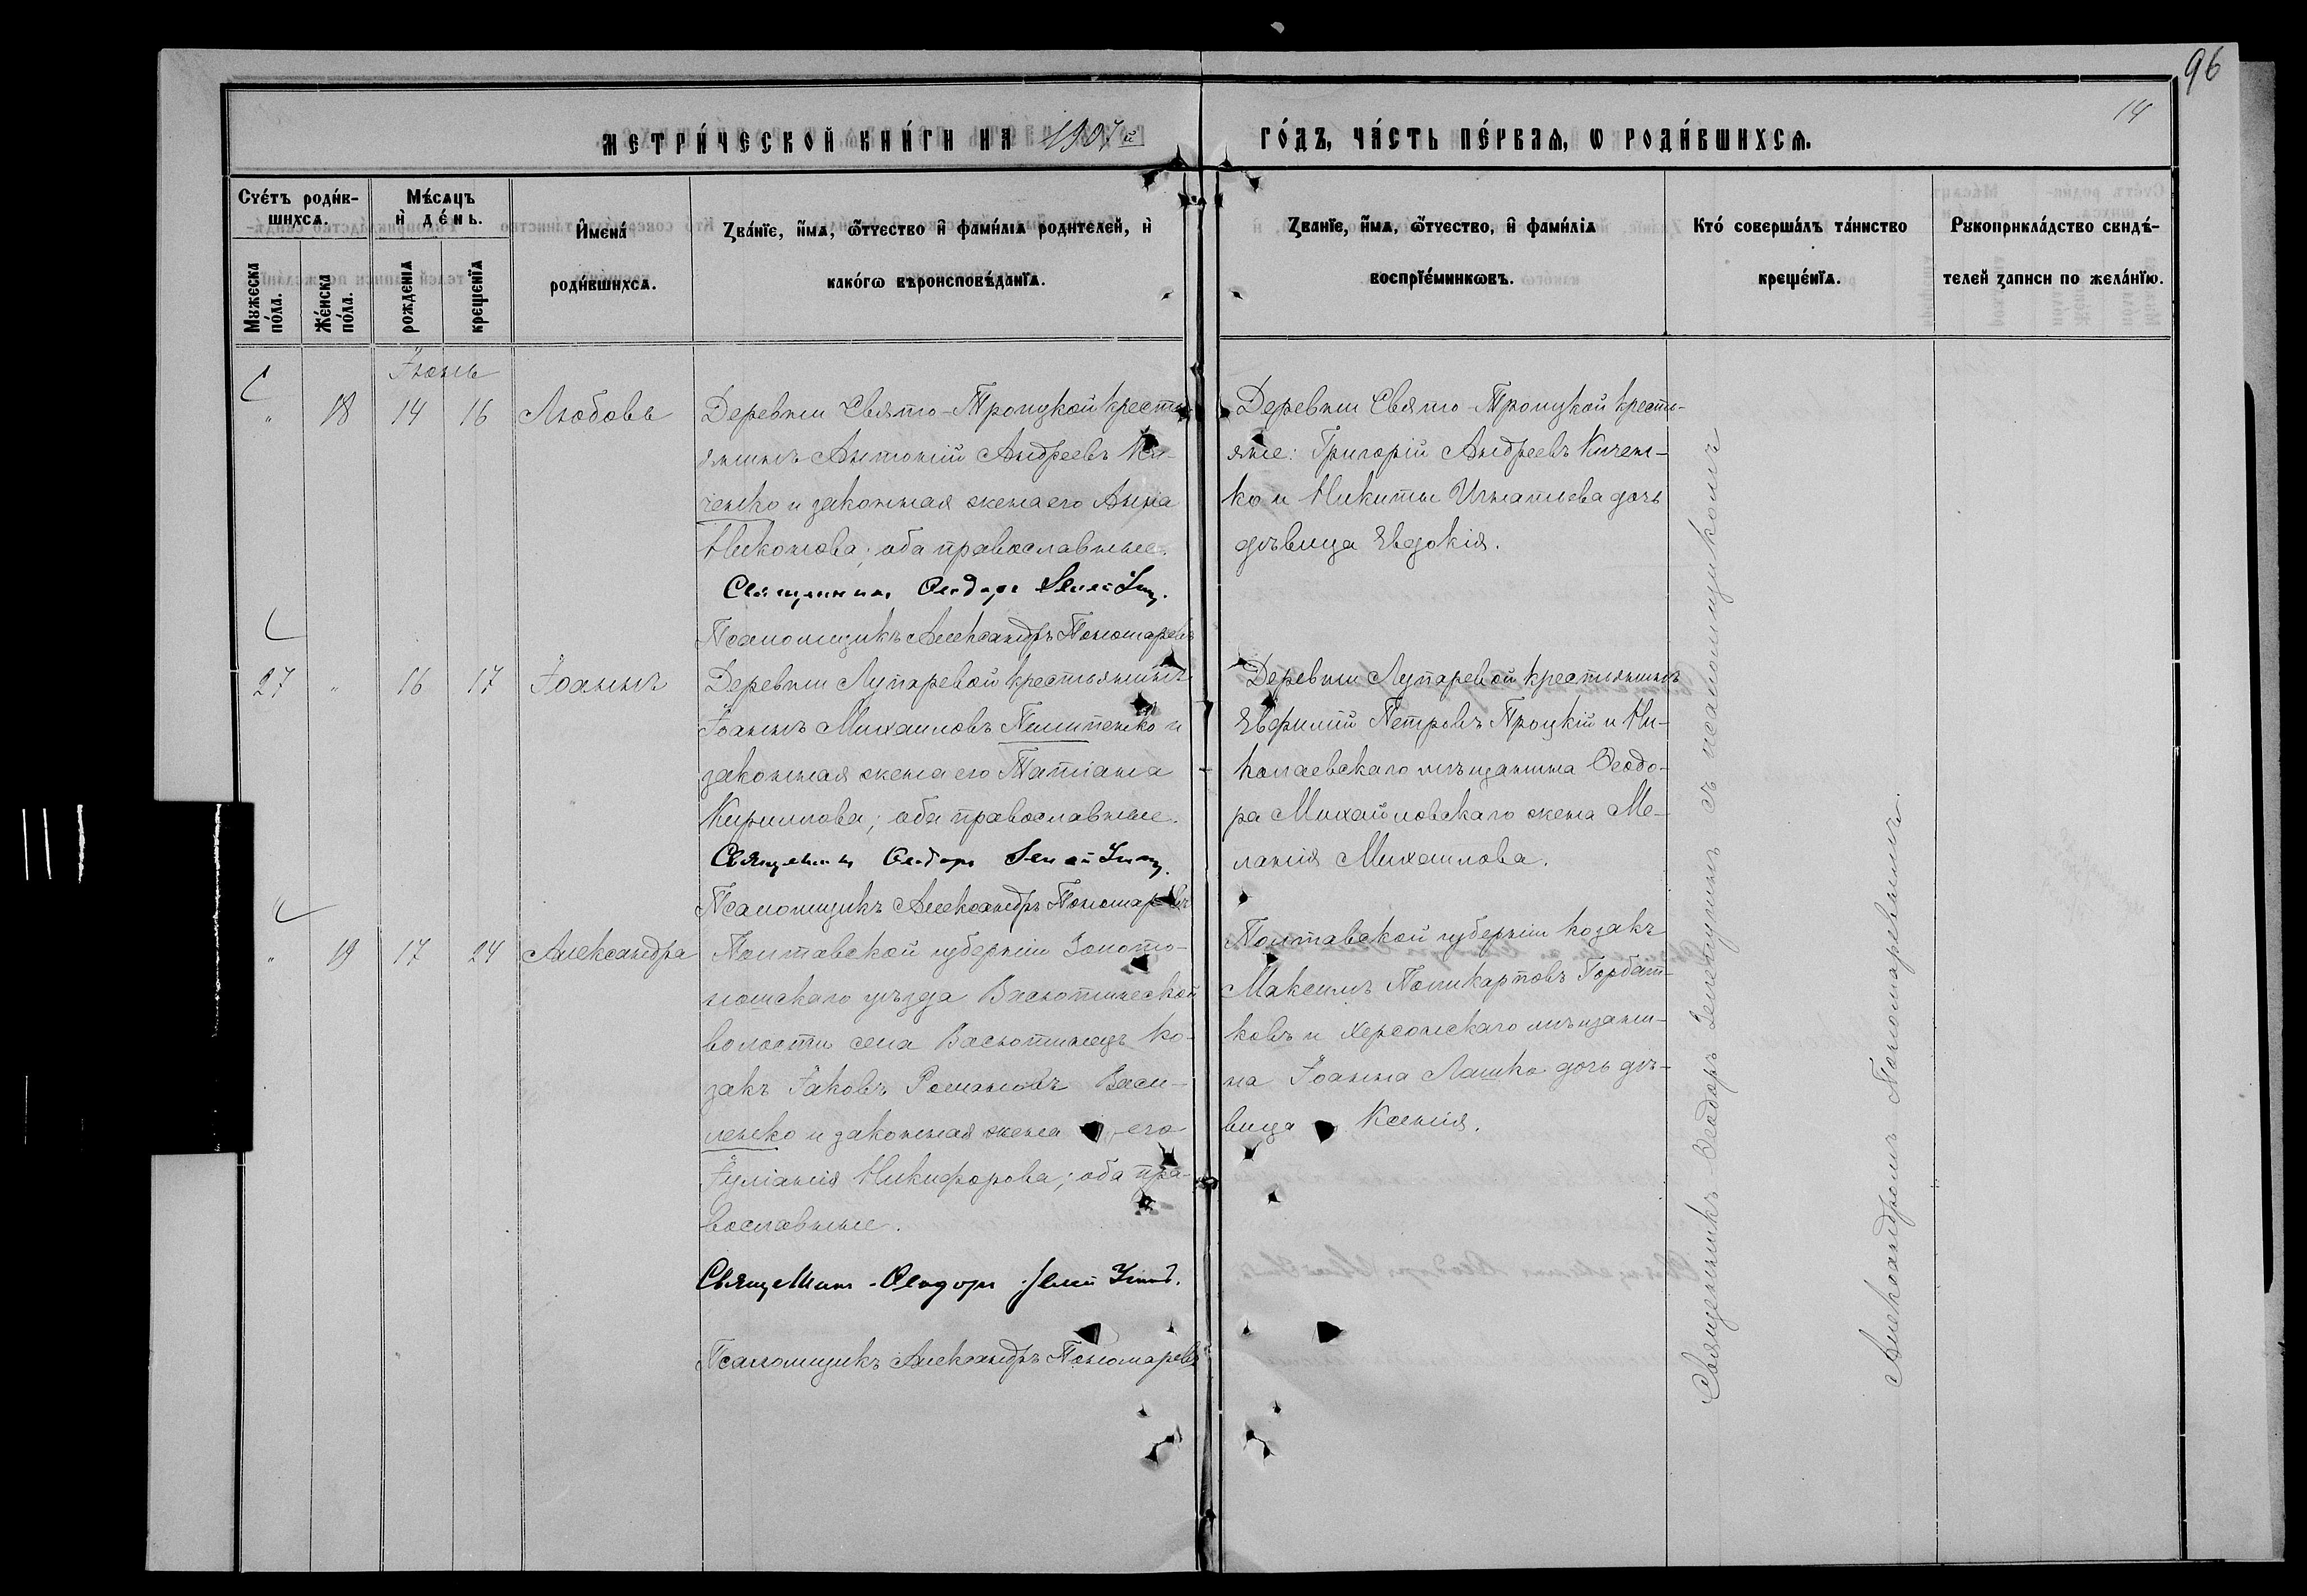 96
14
МЕТРИ́ЧЕСКОЙ КНИ́ГИ НА 1907й ГО́ДЪ, ЧА́СТЬ ПЕ́РВАѦ, Ѡ РОДИ́ВШИХСѦ.
Сче́тъ роди́в-
шихсѧ.
Мꙋжеска по́ла.
Же́нска по́ла.
Мѣ́сѧцъ
и҆ де́нь.
рожденїѧ
крещенїѧ
И҆мена́
роди́вшихсѧ.
Зва́нїе, и҆́мѧ, ѻ҆́тчество и҆ фами́лїѧ родителей, и҆
како́гѡ вѣроисповѣ́данїѧ.
Зва́нїе, и҆́мѧ, ѻ҆́тчество, и҆ фами́лїѧ
воспрїе́мникѡвъ.
Кто́ соверша́лъ та́инство
креще́нїѧ.
Рꙋкоприкла́дство свидѣ́-
телей записи по жела́нїю.
Іюнь
" 18 14 16 Любовь
Деревни Свято-Троицкой кресть-
янинъ Антоній Андреевъ Ки-
ченко и законная жена его Анна
Никонова; оба православные.
Священникъ Ѳеодоръ
Псаломщикъ Александръ Пономаревъ
Деревни Свято-Троицкой кресть-
яне: Григорій Андреевъ Кичен-
ко и Никиты Игнатьева дочь
дѣвица Евдокія.
27 " 16 17 Іоаннъ
Деревни Лупаревой крестьянинъ
Іоаннъ Михаиловъ Пилипенко и
законная жена его Татіана
Кириллова; оба православные.
Священникъ Ѳеодоръ
Псаломщикъ Александръ Пономаревъ
Деревни Лупаревой крестьянинъ
Евфимій Петровъ Троцкій и Ни-
колаевскаго мѣщанина Ѳеодо-
ра Михайловскаго жена Ме-
ланія Михаилова.
" 19 17 24 Александра
Полтавской губерніи Золото-
ношскаго уѣзда Васютинской
волости села Васютинецъ ко-
закъ Іаковъ Романовъ Васи-
ленко и законная жена его
Іуліанія Никифорова; оба пра-
вославные.
Священникъ Ѳеодоръ
Псаломщикъ Александръ Пономаревъ
Полтавской губерніи козакъ
Максимъ Поликарповъ Горбат-
ковъ и Херсонскаго мѣщани-
на Іоанна Лашко дочь дѣ-
вица Ксенія.
Священникъ Ѳеодоръ съ псаломщикомъ
Александромъ Пономаревымъ.